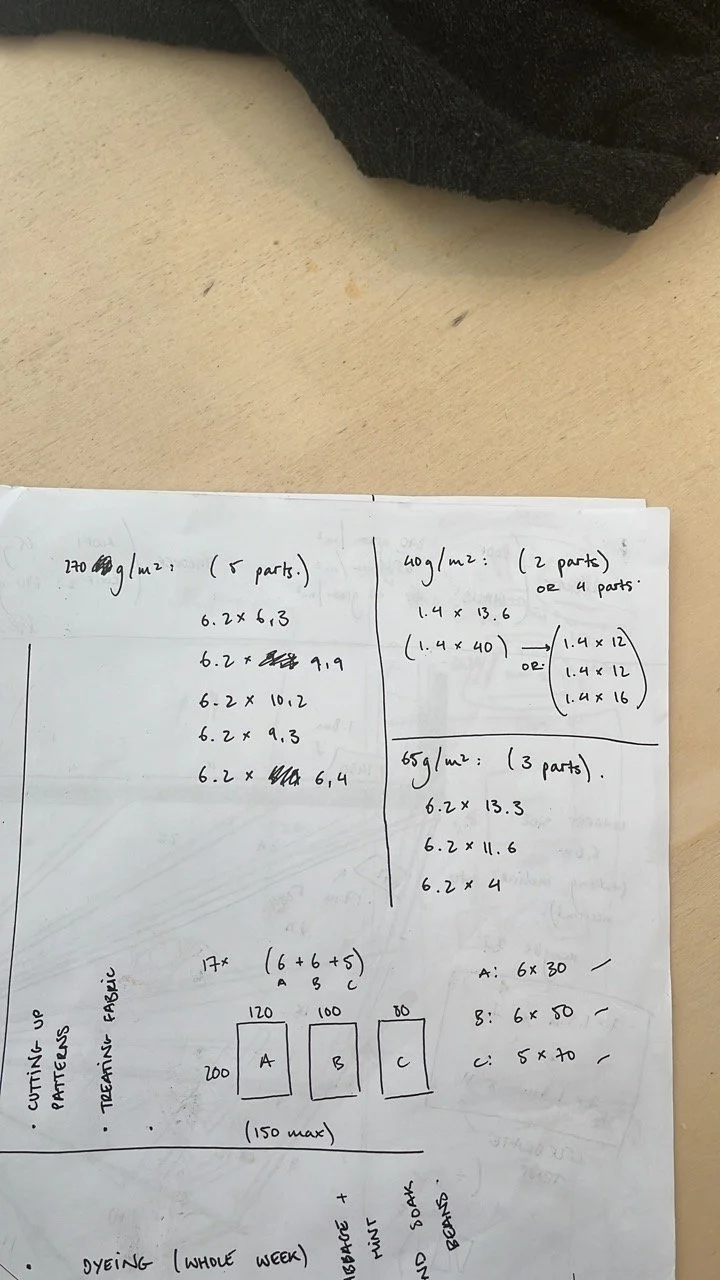 270 g/m²: (5 parts.)
6.2 × 6,3
6.2 × 9,9
6.2 × 10,2
6.2 × 9,3
6.2 × 6,4
40g/m²: (2 parts)
OR 4 parts.
1.4 × 13.6
(1.4 × 40) → OR. (1.4 × 12
1.4 × 12
1.4 × 16)
65g/m²: (3 parts).
6.2 × 13.3
6.2 × 11.6
6.2 × 4
17× (6 + 6 + 5)
A B C
120 100 80
200 A B C
(150 max)
A: 6× 30
B: 6× 50
C: 5 × 70
• CUTTING UP
PATTERNS
• TREATING FABRIC
•
• DYEING (WHOLE WEEK)
MINT
SOAK
BEANS.